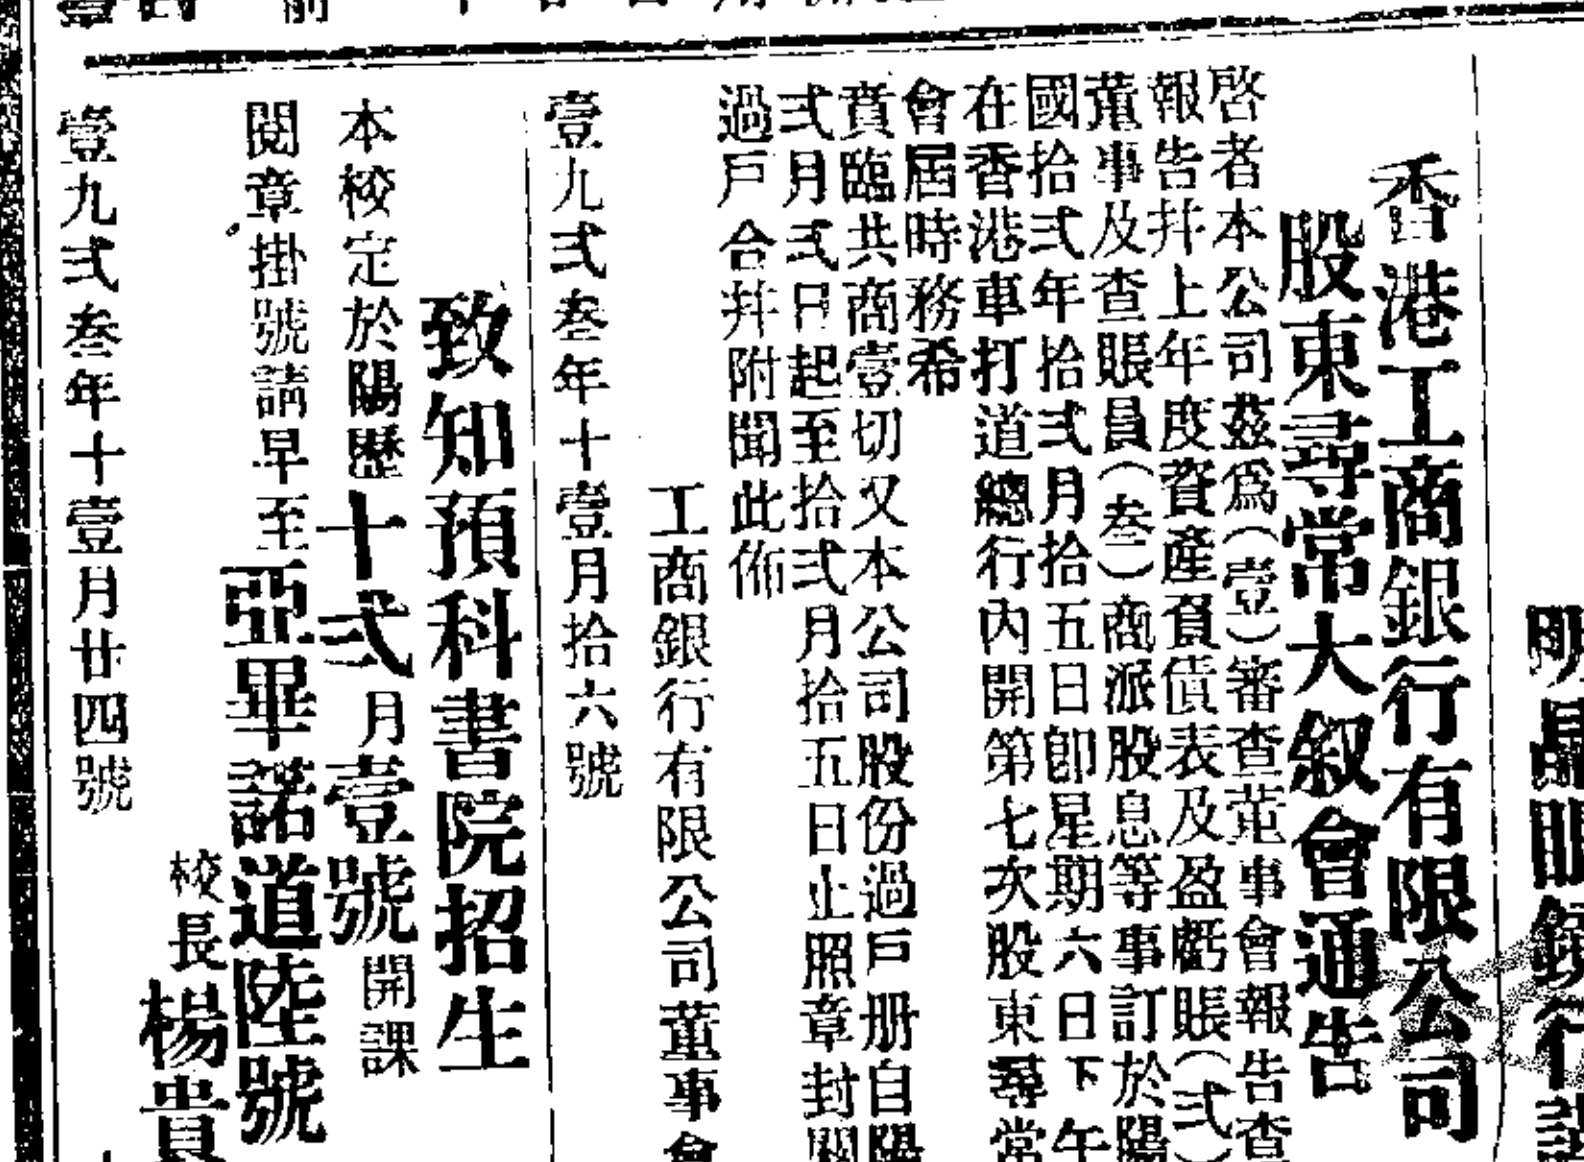 明晶眼鏡行
香港工商銀行有限公司
股東尋常大叙會通告
啓者本公司茲爲(壹)審查董事會報告查
報告幷上年度資產負債表及盈虧賬(弍)
董事及查賬員(叁)商派股息等事訂於陽
國拾弍年拾弍月拾五日卽星期六日下午
在香港車打道總行內開第七次股東尋常
會屆時務希
賁臨共商壹切又本公司股份過戶册自陽
弍月弍日起至拾弍月拾五日止照章封關
過戶合幷附聞此佈
工商銀行有限公司董事會
壹九弍叁年十壹月拾六號
致知預科書院招生
本校定於陽歷十弍月壹號開課
閱章掛號請早至亞畢諾道陸號
校長楊貴
壹九弍叁年十壹月廿四號